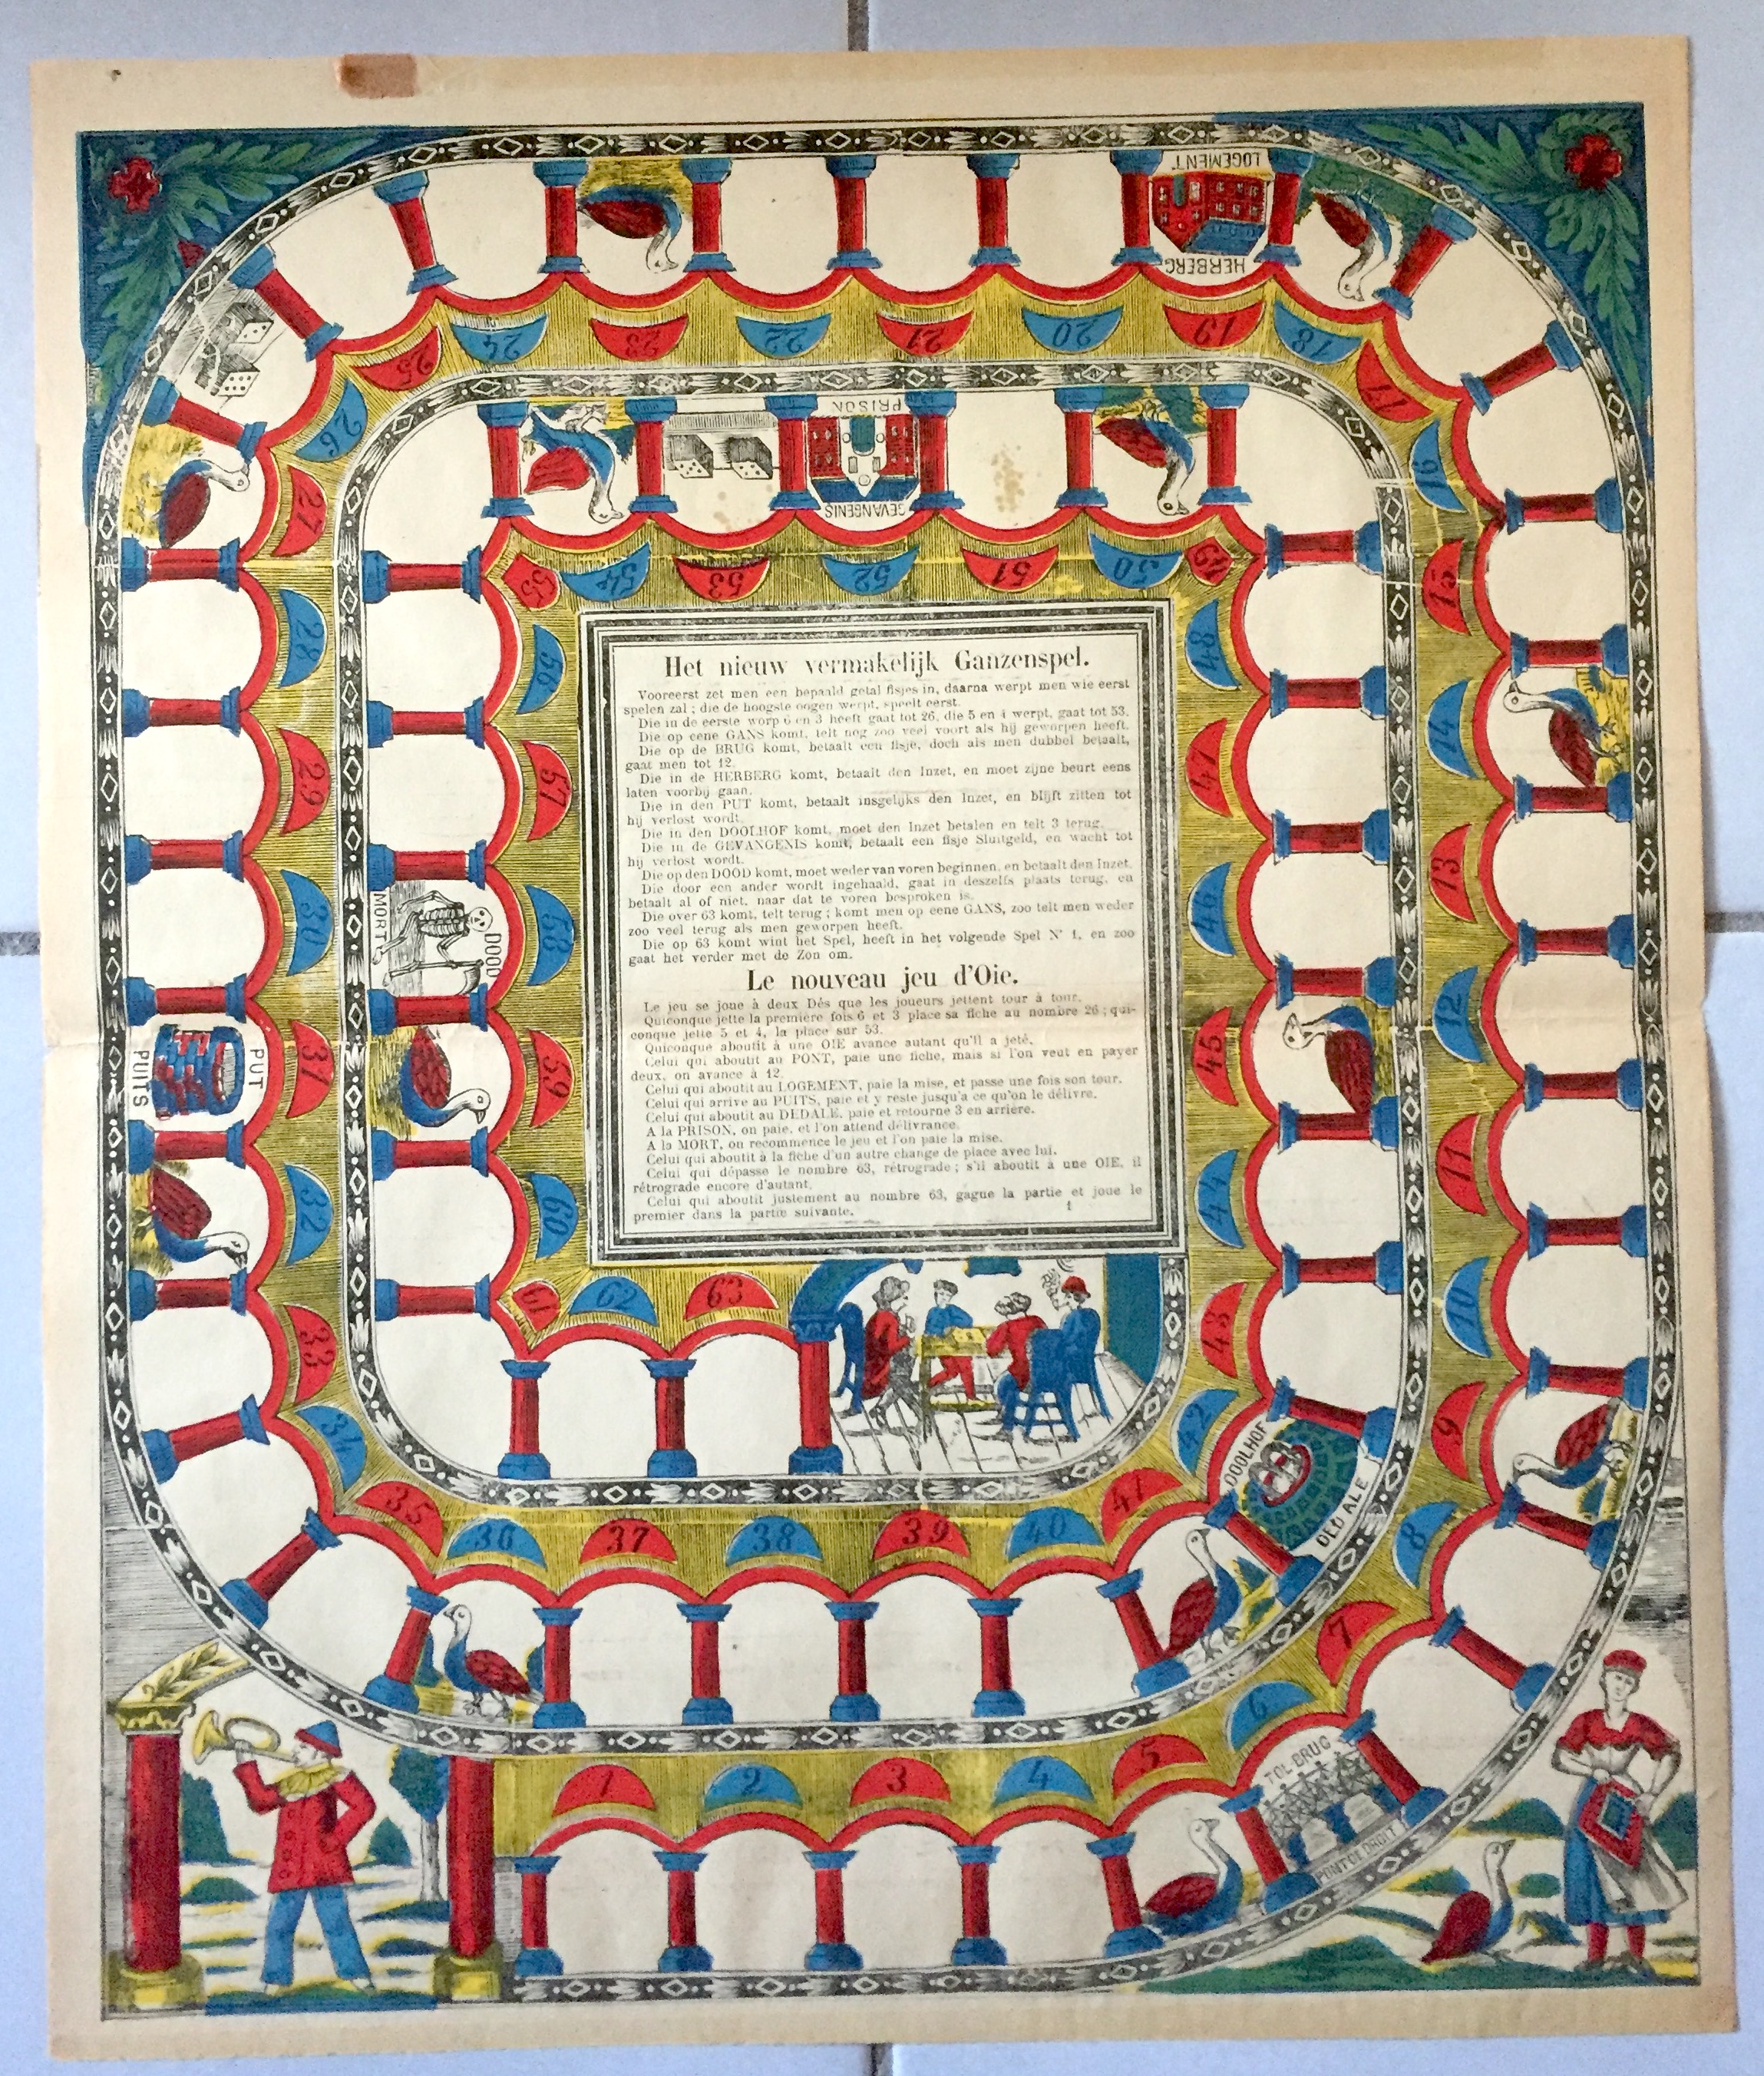 Het nieuw vermakelijk Ganzenspel.
Vooreerst zet men een bepaald getal fisjes in, daarna werpt men wie eerst
spelen zal ; die de hoogste oogen werpt, speelt eerst.
Die in de eerste worp 6 en 3 heeft gaat tot 26, die 5 en 4 werpt, gaat tot 53.
Die op eene GANS komt, telt nog zoo veel voort als hij geworpen heeft.
Die op de BRUG komt, betaalt een fisje, doch als men dubbel betaalt,
gaat men tot 12.
Die in de HERBERG komt, betaalt den Inzet, en moet zijne beurt eens
laten voorbij gaan.
Die in den PUT komt, betaalt insgelijks den Inzet, en blijft zitten tot
hij verlost wordt.
Die in den DOOLHOF komt, moet den Inzet betalen en telt 3 terug.
Die in de GEVANGENIS komt, betaalt een fisje Sluitgeld, en wacht tot
hij verlost wordt.
Die op den DOOD komt, moet weder van voren beginnen, en betaalt den Inzet.
Die door een ander wordt ingehaald, gaat in deszelfs plaats terug, en
betaalt al of niet, naar dat te voren besproken is.
Die over 63 komt, telt terug ; komt men op eene GANS, zoo telt men weder
zoo veel terug als men geworpen heeft.
Die op 63 komt wint het Spel, heeft in het volgende Spel N° 1, en zoo
gaat het verder met de Zon om.
Le nouveau jeu d'Oie.
Le jeu se joue à deux Dés que les joueurs jettent tour à tour.
Quiconque jette la première fois 6 et 3 place sa fiche au nombre 26 ; qui-
conque jette 5 et 4, la place sur 53.
Quiconque aboutit à une OIE avance autant qu'il a jeté.
Celui qui aboutit au PONT, paie une fiche, mais si l'on veut en payer
deux, on avance à 12.
Celui qui aboutit au LOGEMENT, paie la mise, et passe une fois son tour.
Celui qui arrive au PUITS, paie et y reste jusqu'a ce qu'on le délivre.
Celui qui aboutit au DEDALE, paie et retourne 3 en arrière.
A la PRISON, on paie, et l'on attend délivrance.
A la MORT, on recommence le jeu et l'on paie la mise.
Celui qui aboutit à la fiche d'un autre change de place avec lui.
Celui qui dépasse le nombre 63, rétrograde ; s'il aboutit à une OIE, il
rétrograde encore d'autant.
Celui qui aboutit justement au nombre 63, gagne la partie et joue le
premier dans la partie suivante.
1
1
2
3
4
5
6
TOL-BRUG
PONT DE DROIT
7
8
9
10
11
12
13
14
15
16
17
18
19
HERBERG
LOGEMENT
20
21
22
23
24
25
26
27
28
29
30
31
PUT
PUITS
32
33
34
35
36
37
38
39
40
41
42
DOOLHOF
DEDALE
43
44
45
46
47
48
49
50
51
52
GEVANGENIS
PRISON
53
54
55
56
57
58
DOOD
MORT
59
60
61
62
63